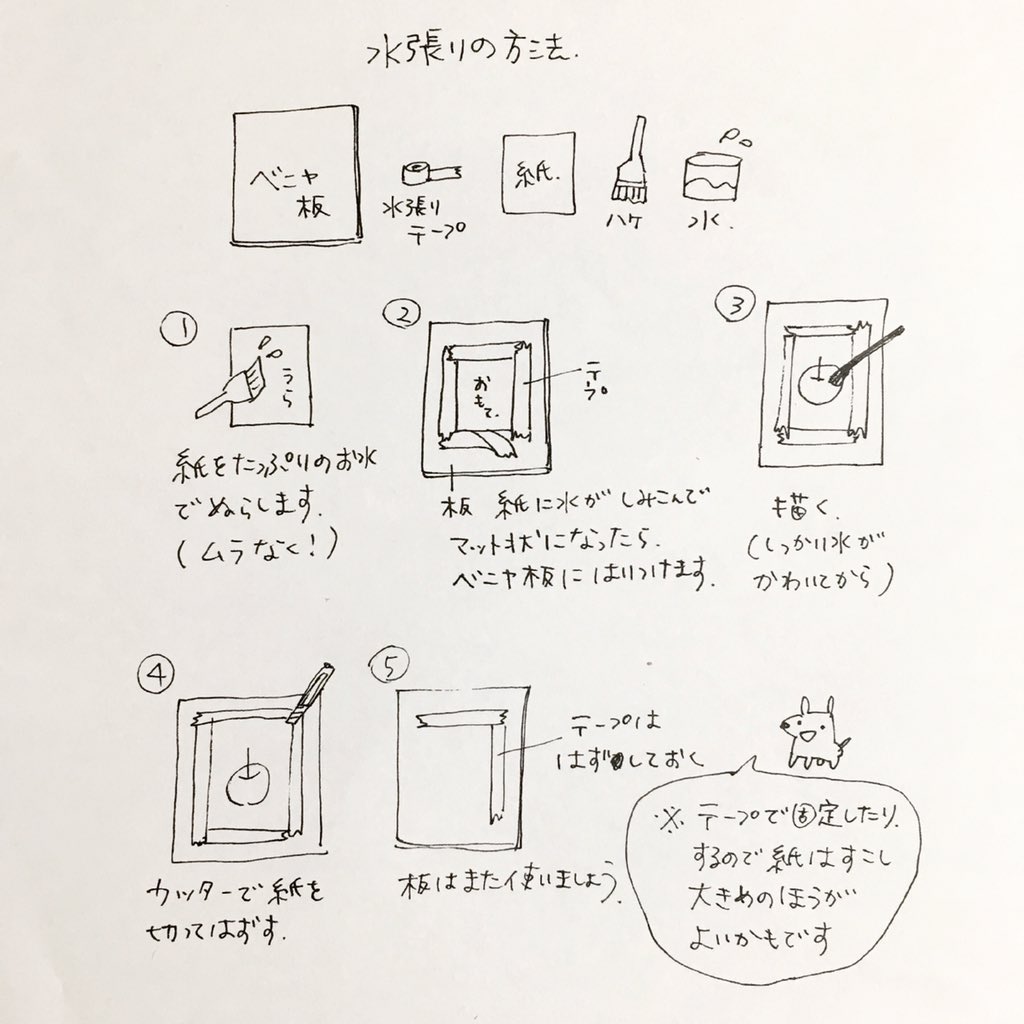 水張りの方法.
ベニヤ
板
水張り
テープ
紙.
ハケ
水.
①
うら
紙をたっぷりのお水
でぬらします.
(ムラなく!)
②
おもて.
テープ
板
紙に水がしみこんで
マット状になったら.
ベニヤ板にはりつけます.
③
描く.
(しっかり水が
かわいてから)
④
カッターで紙を
切ってはずす.
⑤
テープは
はずしておく
板はまた使いましょう.
※テープで固定したり.
するので紙はすこし
大きめのほうが
よいかもです